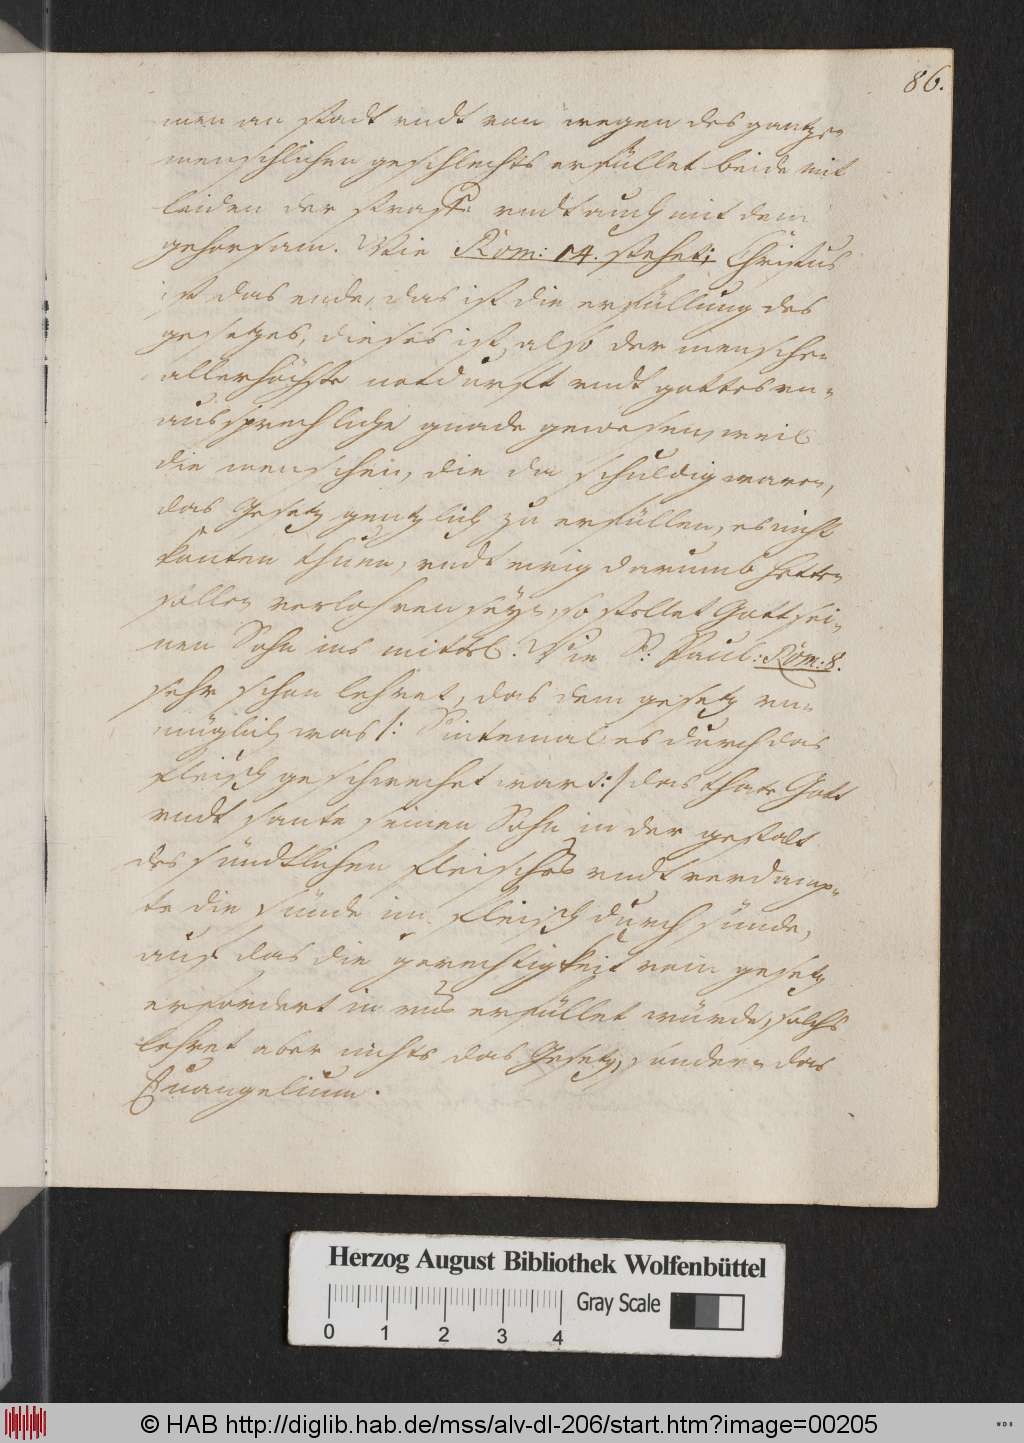 86.
men an stadt undt von wegen des gantzen
menschlichen geschlechts erfüllet beide mit
leiden der straffe undt auch mit dem
gehorsam. Wie Röm: 14. stehet; Christus
ist das ende, das ist die erfüllung des
gesetzes, dieses ist also der menschen
allerhöchste notdurfft undt gottes un-
aussprechliche gnade gewesen, weil
die menschen, die da schuldig waren,
das Gesetz gentzlich zu erfüllen, es nicht
konten thuen, undt ewig darumb hetten
sollen verlohren seyn, so stellet Gott sei-
nen Sohn ins mittel. Wie S: Paul: Röm: 8.
sehr schon lehret, das dem gesetz un-
müglich was /: Sintemal es durch das
fleisch geschwechet wardt :/ das thate Gott
undt sante seinen Sohn in der gestalt
des sündtlichen fleisches undt verdamp-
te die sünde im fleisch durch sünde,
auf das die gerechtigkeit vom gesetz
erfordert in uns erfüllet würde, solchs
lehret aber nichts das Gesetz, sondern das
Euangelium.
Herzog August Bibliothek Wolfenbüttel
Gray Scale
0 1 2 3 4
© HAB http://diglib.hab.de/mss/alv-dl-206/start.htm?image=00205